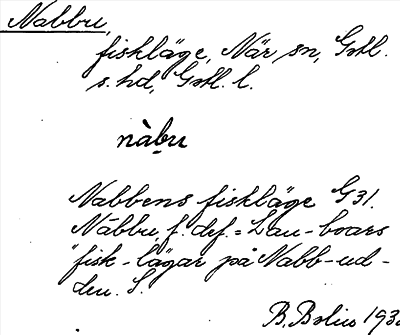 Nabbu,
fiskläge, När sn, Gotl.
s. hd, Gotl. l.
nàbu
Nabbens fiskläge G31.
Nàbbu, f. def. = Lau-boars
fisk-lägar på Nabb-ud-
den. S.
B. Bolin 193